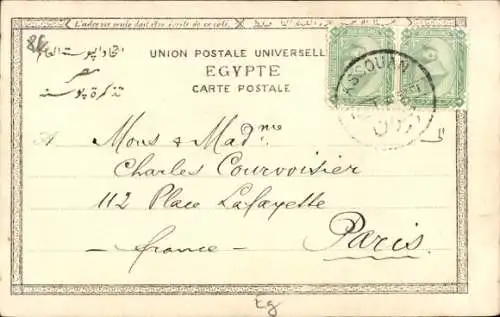 L'adresse seule doit être écrite de ce côté.
86
UNION POSTALE UNIVERSELLE
EGYPTE
CARTE POSTALE
مصر
تذكرة بوسته
ASSOUAN
A Mons & Mad.me
Charles Courvoisier
112 Place Lafayette
France — Paris
Eg